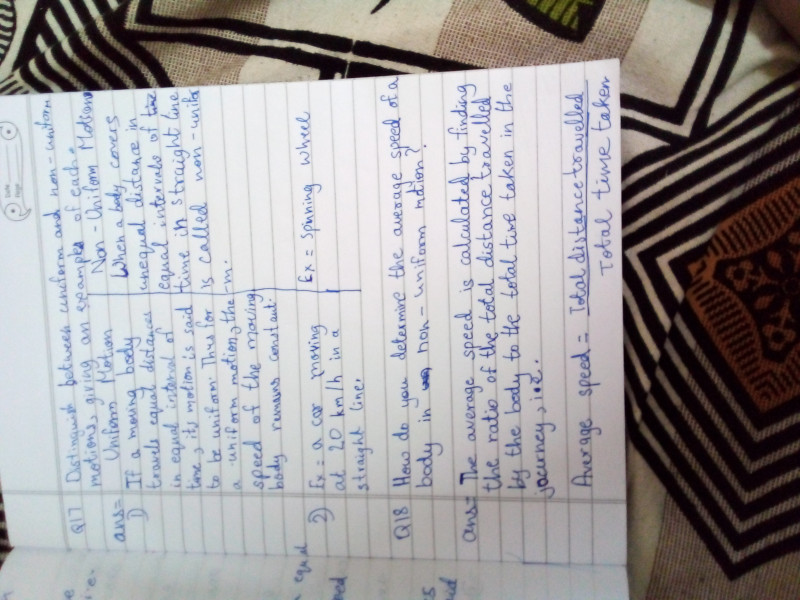 Q17 Distinguish between uniform and non-uniform
motions, giving an example of each.
ans= Uniform Motion
1) If a moving body
travels equal distances
in equal interval of
time, its motion is said
to be uniform. Thus for
a -uniform motion, the
speed of the moving
body remains constant.
2) Ex = a car moving
at 20 km/h in a
straight line.
Non-Uniform Motion
When a body covers
unequal distance in
equal intervals of time
time in straight line
is called non-unifor
-m.
Ex = Spinning wheel
Q18 How do you determine the average speed of a
body in non-uniform motion?
ans= The average speed is calculated by finding
the ratio of the total distance travelled
by the body to the total time taken in the
journey, i.e.
Average speed = Total distance travelled
Total time taken